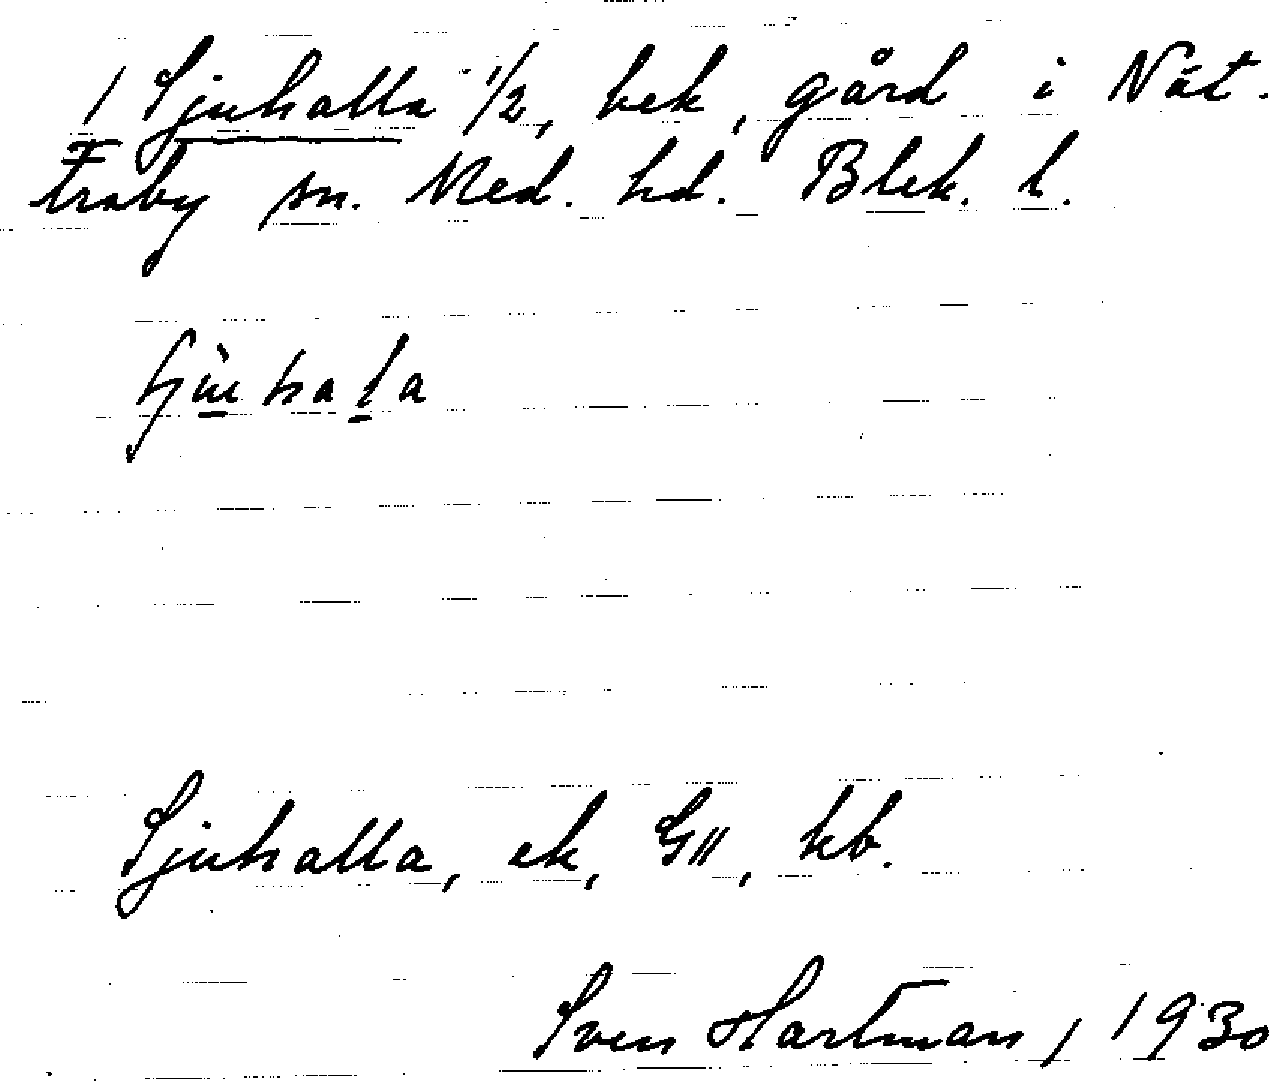 1 Sjuhalla 1/2, bek, gård i Nät.
traby sn. Med. hd. Blek. l.
Sjuhalla, ek, GII, kb.
Sven Hartman, 1930